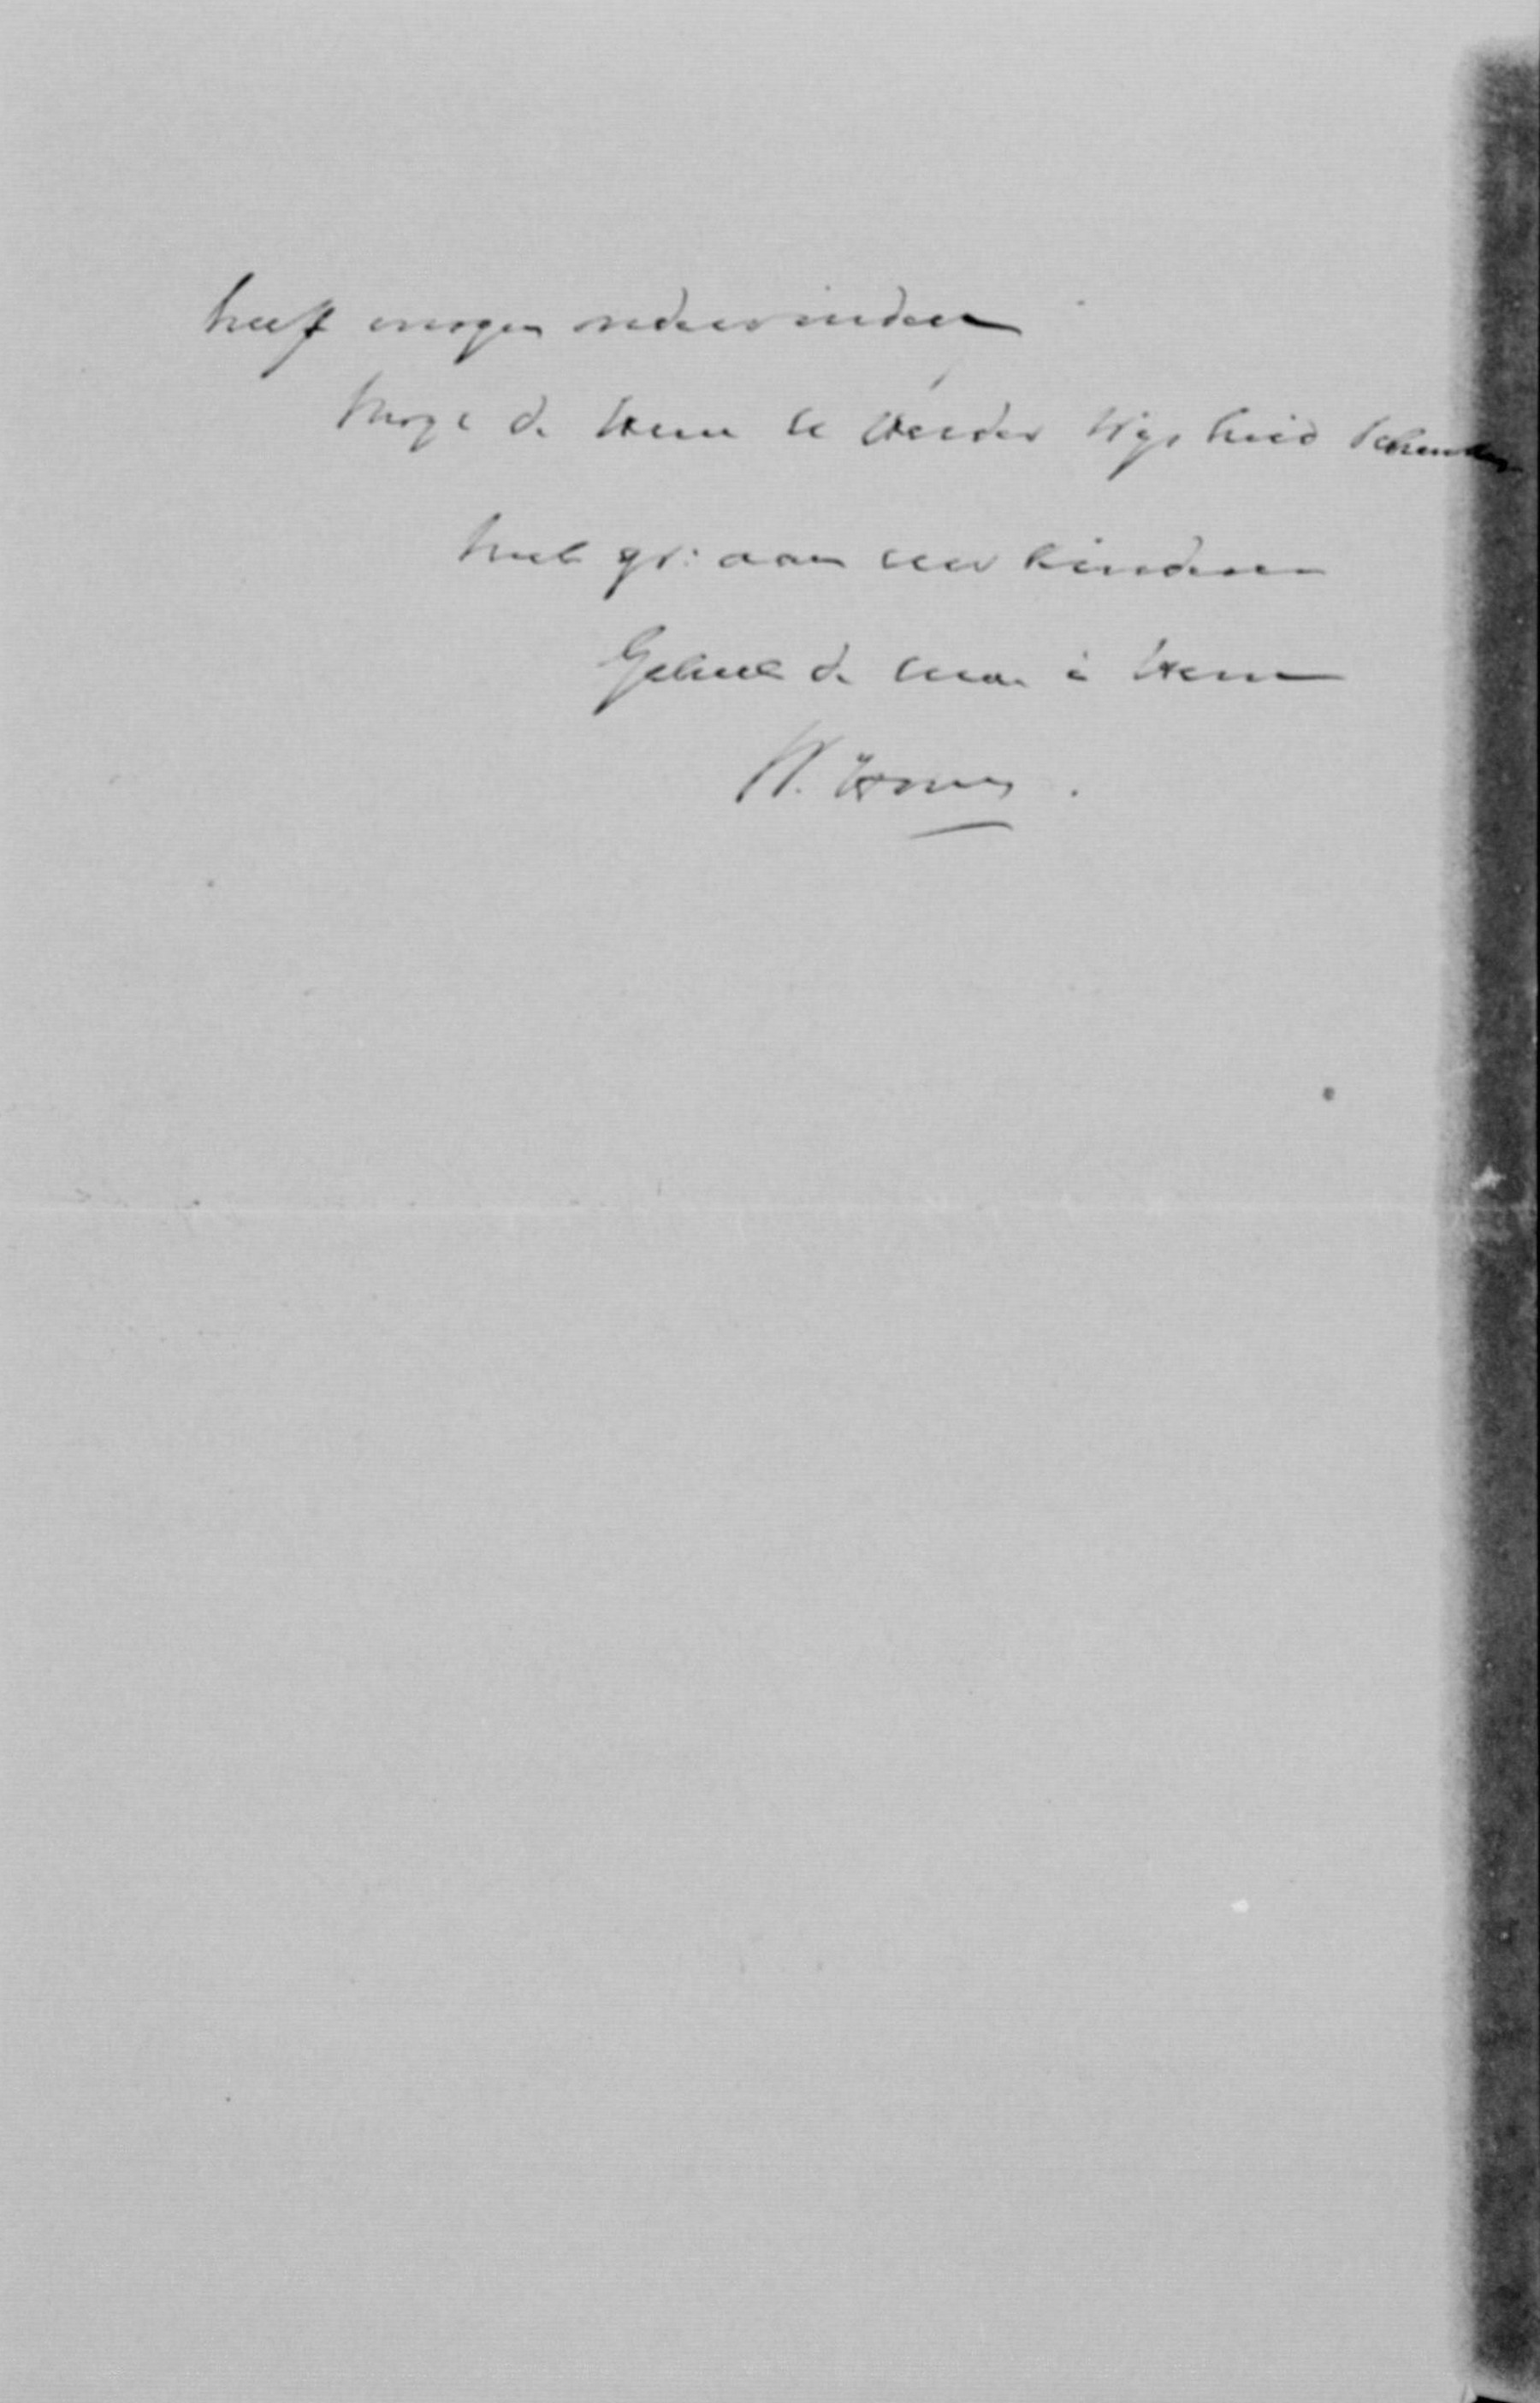 heeft mogen ondervinden
Moge de Heere U verder wijsheid schenken
Met gr: aan uw kinderen
Geheel de uwe in Heere